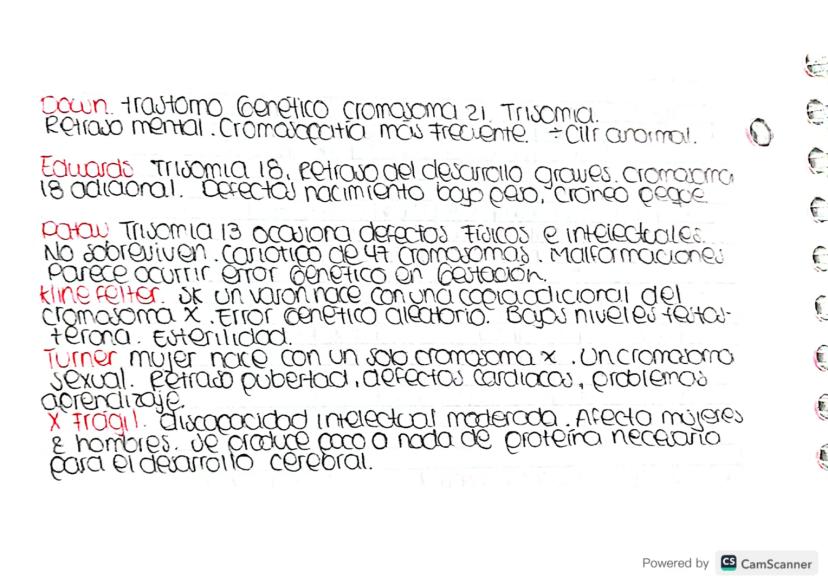 Down. trastorno Genético cromosoma 21. Trisomia.
Retraso mental. Cromosopatía más frecuente. ÷ Clr anormal.
Edwards Trisomia 18. Retraso del desarrollo graves. cromosoma
18 adicional. Defectos nacimiento bajo peso, cráneo peque
Patau Trisomia 13 ocasiona defectos Físicos e intelectuales.
No sobreviven. cariotipo de 47 cromosomas. Malformaciones
Parece ocurrir error Genético en Gestación.
Klinefelter. SK un varon nace con una copia adicional del
cromosoma X. Error Genético aleatorio. Bajos niveles testos-
terona. Esterilidad.
Turner mujer nace con un solo cromosoma x. Un cromosoma
sexual. Retraso pubertad, defectos cardiacos, problemas
aprendizaje.
X Frágil. discapacidad intelectual moderada. Afecta mujeres
& hombres. Se produce poco o nada de proteína necesaria
para el desarrollo cerebral.
Powered by CS CamScanner